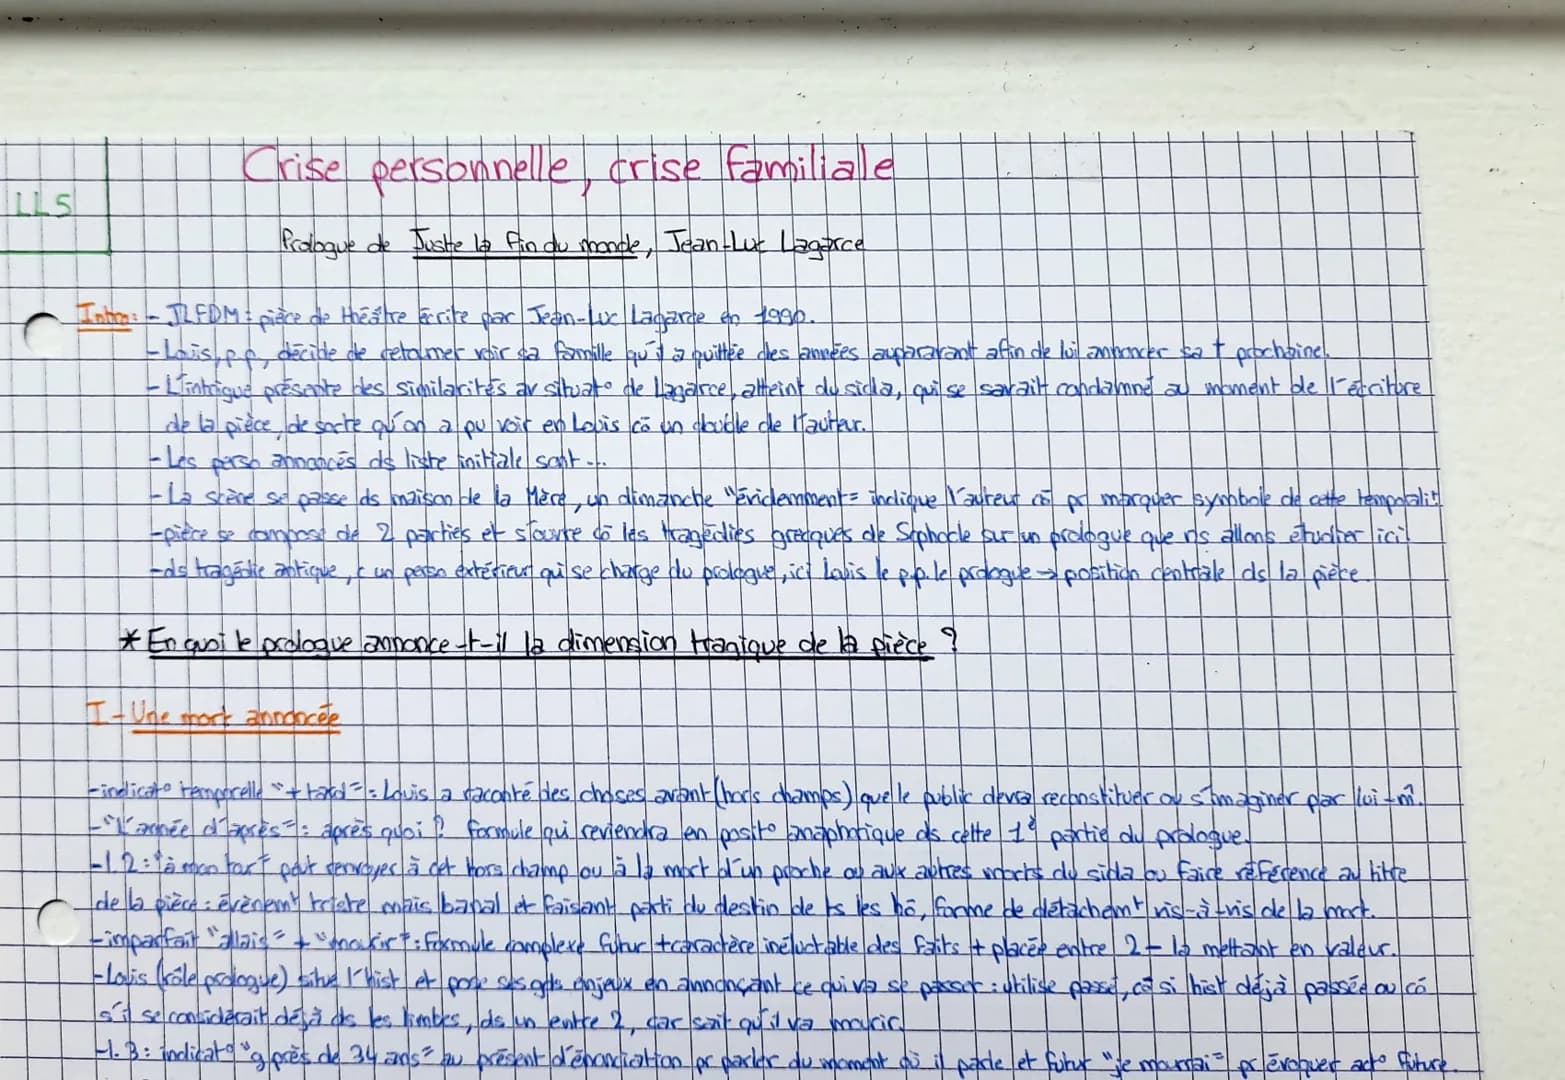 LL5
Crise personnelle, crise familiale
Prologue de Juste la fin du monde, Jean-Luc Lagarce
Intro: - JLFDM : pièce de théâtre écrite par Jean-Luc Lagarde en 1990.
- Louis, p.p, décide de retourner voir sa famille qu'il a quittée des années auparavant afin de lui annoncer sa † prochaine.
- L'intrigue présente des similarités av situat° de Lagarce, atteint du sida, qui se savait condamné au moment de l'écriture
de la pièce, de sorte qu'on a pu voir en Louis cō un double de l'auteur.
- Les perso annoncés ds liste initiale sont ...
- La scène se passe ds maison de la Mère, un dimanche "évidemment" indique l'auteur cō pr marquer symbole de cette temporalit
- pièce se compose de 2 parties et s'ouvre cō les tragédies grecques de Sophocle sur un prologue que ns allons étudier ici
- ds tragédie antique, c un perso extérieur qui se charge du prologue, ici Louis le p.p. le prologue → position centrale ds la pièce
* En quoi le prologue annonce-t-il la dimension tragique de la pièce ?
I - Une mort annoncée
- indicat° temporelle "+ tard" = Louis a raconté des choses avant (hors champs) que le public devra reconstituer ou s'imaginer par lui-m̂.
- "L'année d'après" : après quoi ? formule qui reviendra en posit° anaphorique ds cette 1e partie du prologue.
- l. 2 : "à mon tour" peut renvoyer à cet hors champ ou à la mort d'un proche ou aux autres morts du sida ou faire référence au titre
de la pièce : évènemt triste mais banal et faisant parti du destin de ts les hō, forme de détachemt vis-à-vis de la mort.
- imparfait "allais" + "mourir" : formule complexe futur + caractère inéluctable des faits + placée entre 2 - la mettant en valeur.
- Louis (rôle prologue) situe l'hist et pose ses gds enjeux en annonçant ce qui va se passer : utilise passé, cō si hist déjà passée ou cō
s'il se considérait déjà ds les limbes, ds un entre 2, car sait qu'il va mourir
- l. 3 : indicat° "près de 34 ans" au présent d'énonciation pr parler du moment où il parle et futur "je mourrai" pr évoquer act° future.